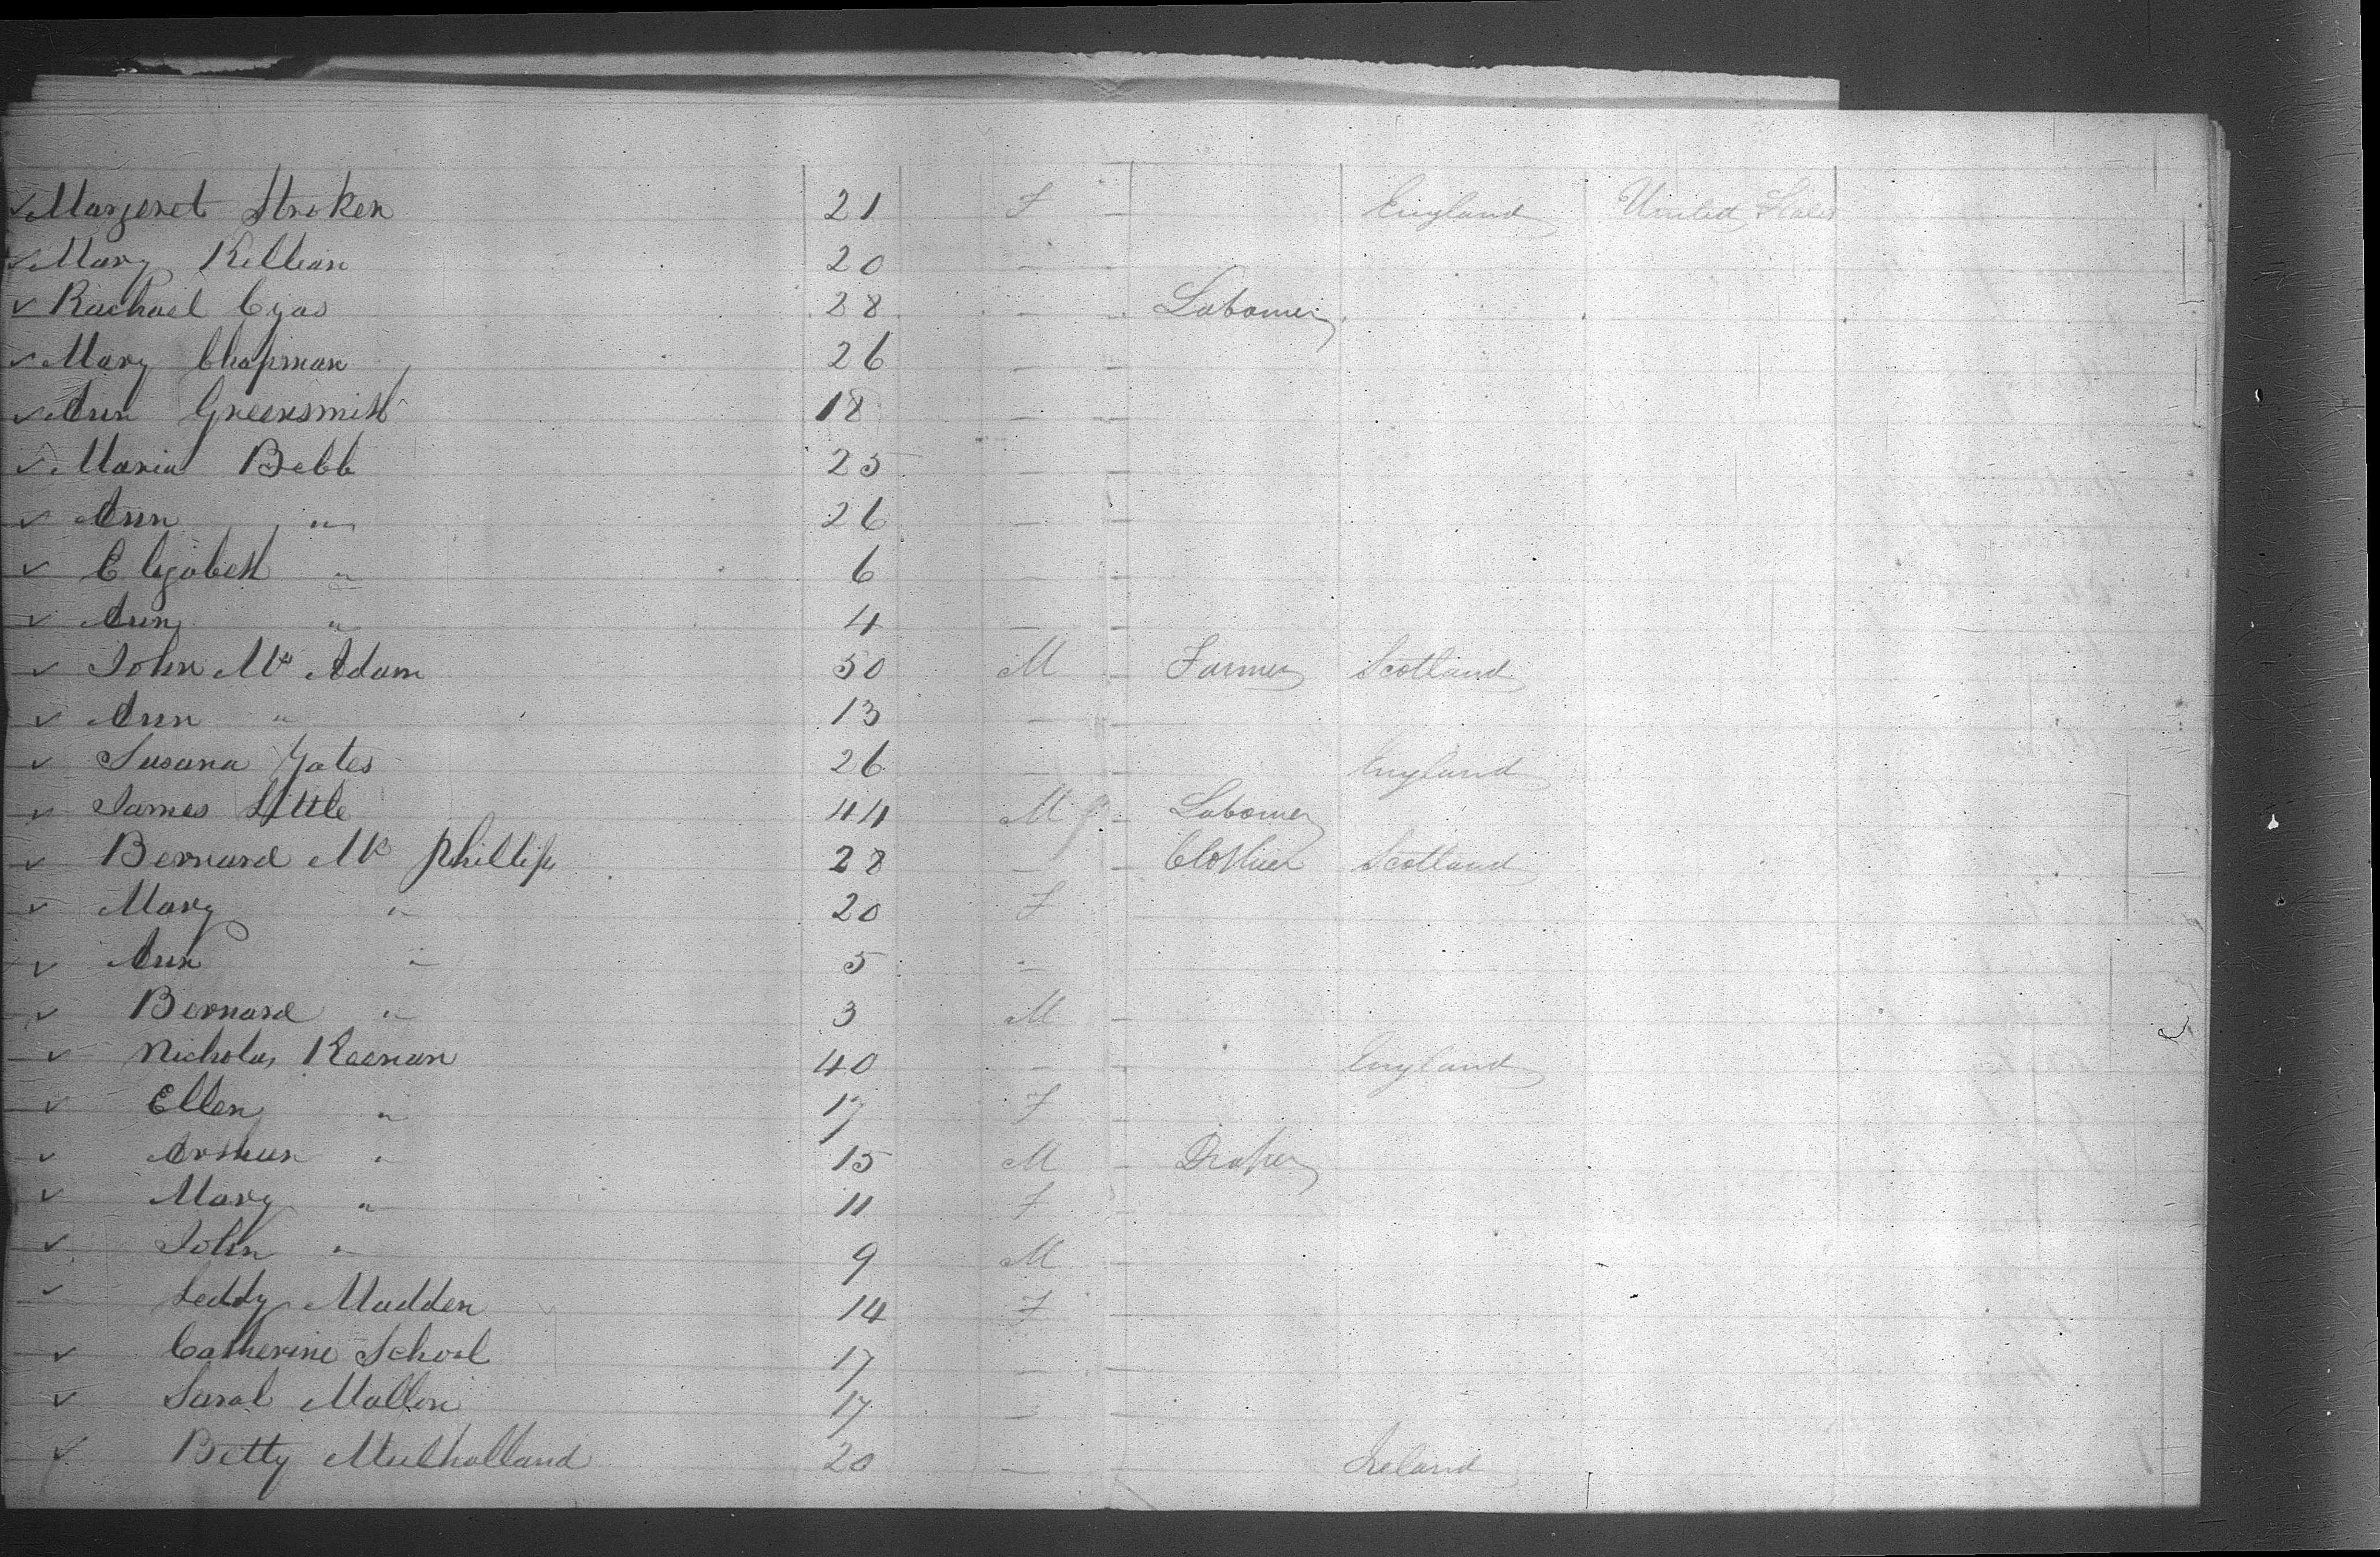 ✓ Margeret Stroken 21 F — England United States
✓ Mary Killian 20 — —
✓ Rachael Cyas 28 — — Labourer
✓ Mary Chapman 26 — —
✓ Ann Greensmith 18 — —
✓ Maria Bebb 25 — —
✓ Ann " 26 — —
✓ Elizabeth " 6 — —
✓ Ann " 4 — —
✓ John Mc Adam 50 M — Farmer Scotland
✓ Ann " 13 — —
✓ Susana Yates 26 — — England
✓ James Little 44 M — Labourer
✓ Bernard Mc Phillip 28 — — Clothier Scotland
✓ Mary " 20 F —
✓ Ann " 5 — —
✓ Bernard " 3 M —
✓ Nicholas Keenan 40 — — England
✓ Ellen " 17 F —
✓ Arthur " 15 M — Draper
✓ Mary " 11 F —
✓ John " 9 M —
✓ Madden 14 F —
✓ Catherine School 17 — —
✓ Sarah Mallon 17 — —
✓ Betty Mulholland 20 — — Ireland